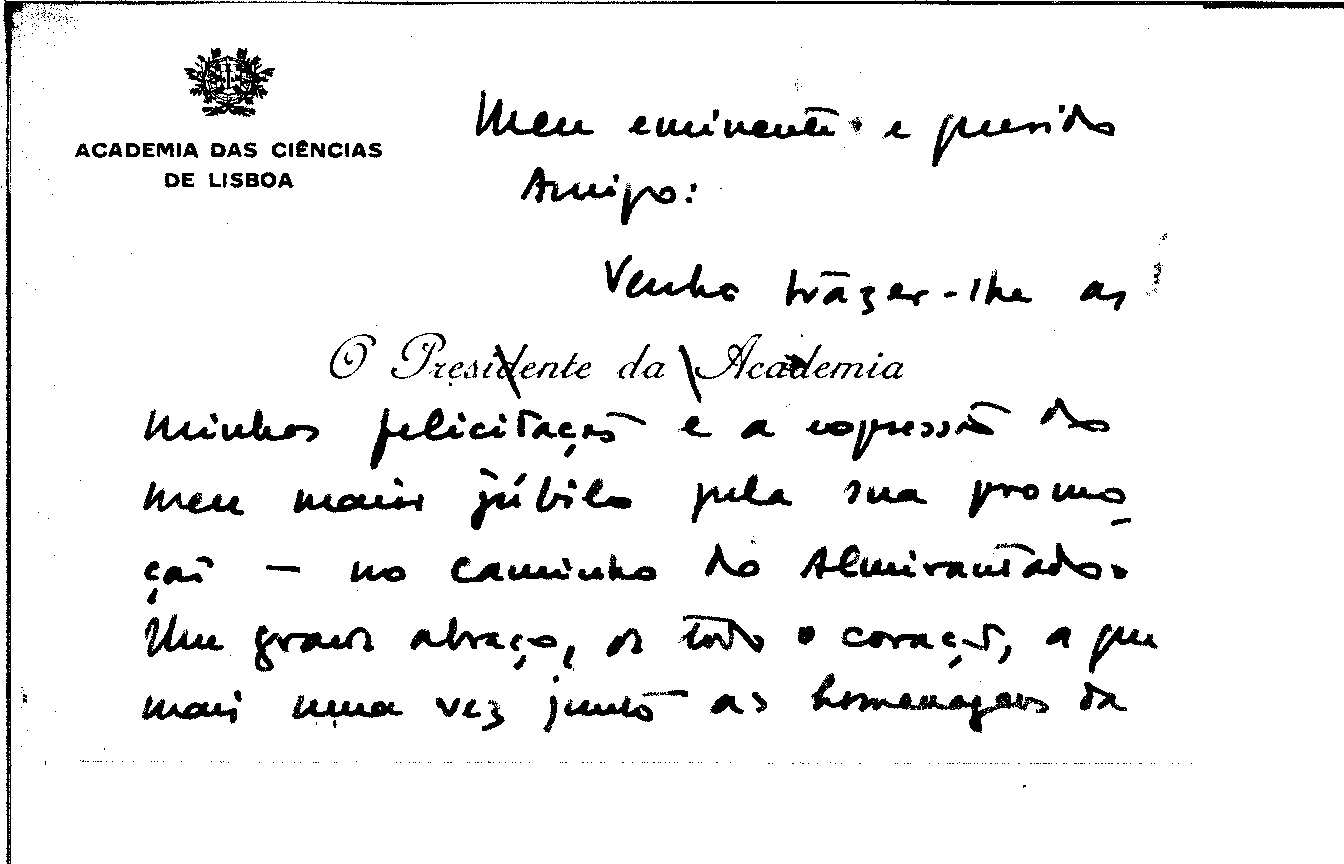 ACADEMIA DAS CIÊNCIAS
DE LISBOA
Meu eminente e querido
Amigo:
Venho trazer-lhe as
O Presidente da Academia
minhas felicitações e a expressão do
meu maior júbilo pela sua promo
ção — no caminho do Almirantado.
Um grande abraço, de todo o coração, a que
mais uma vez junto as homenagens da